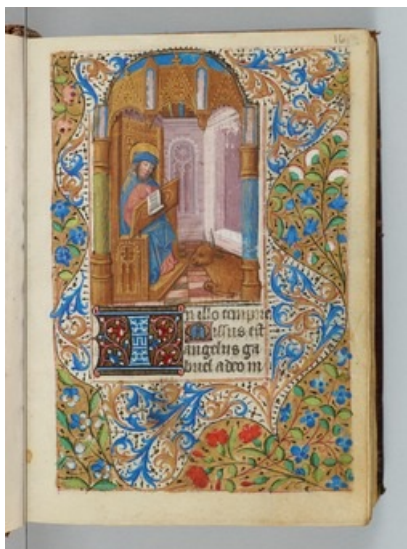 In illo tempore
Missus est
angelus ga
briel a deo in